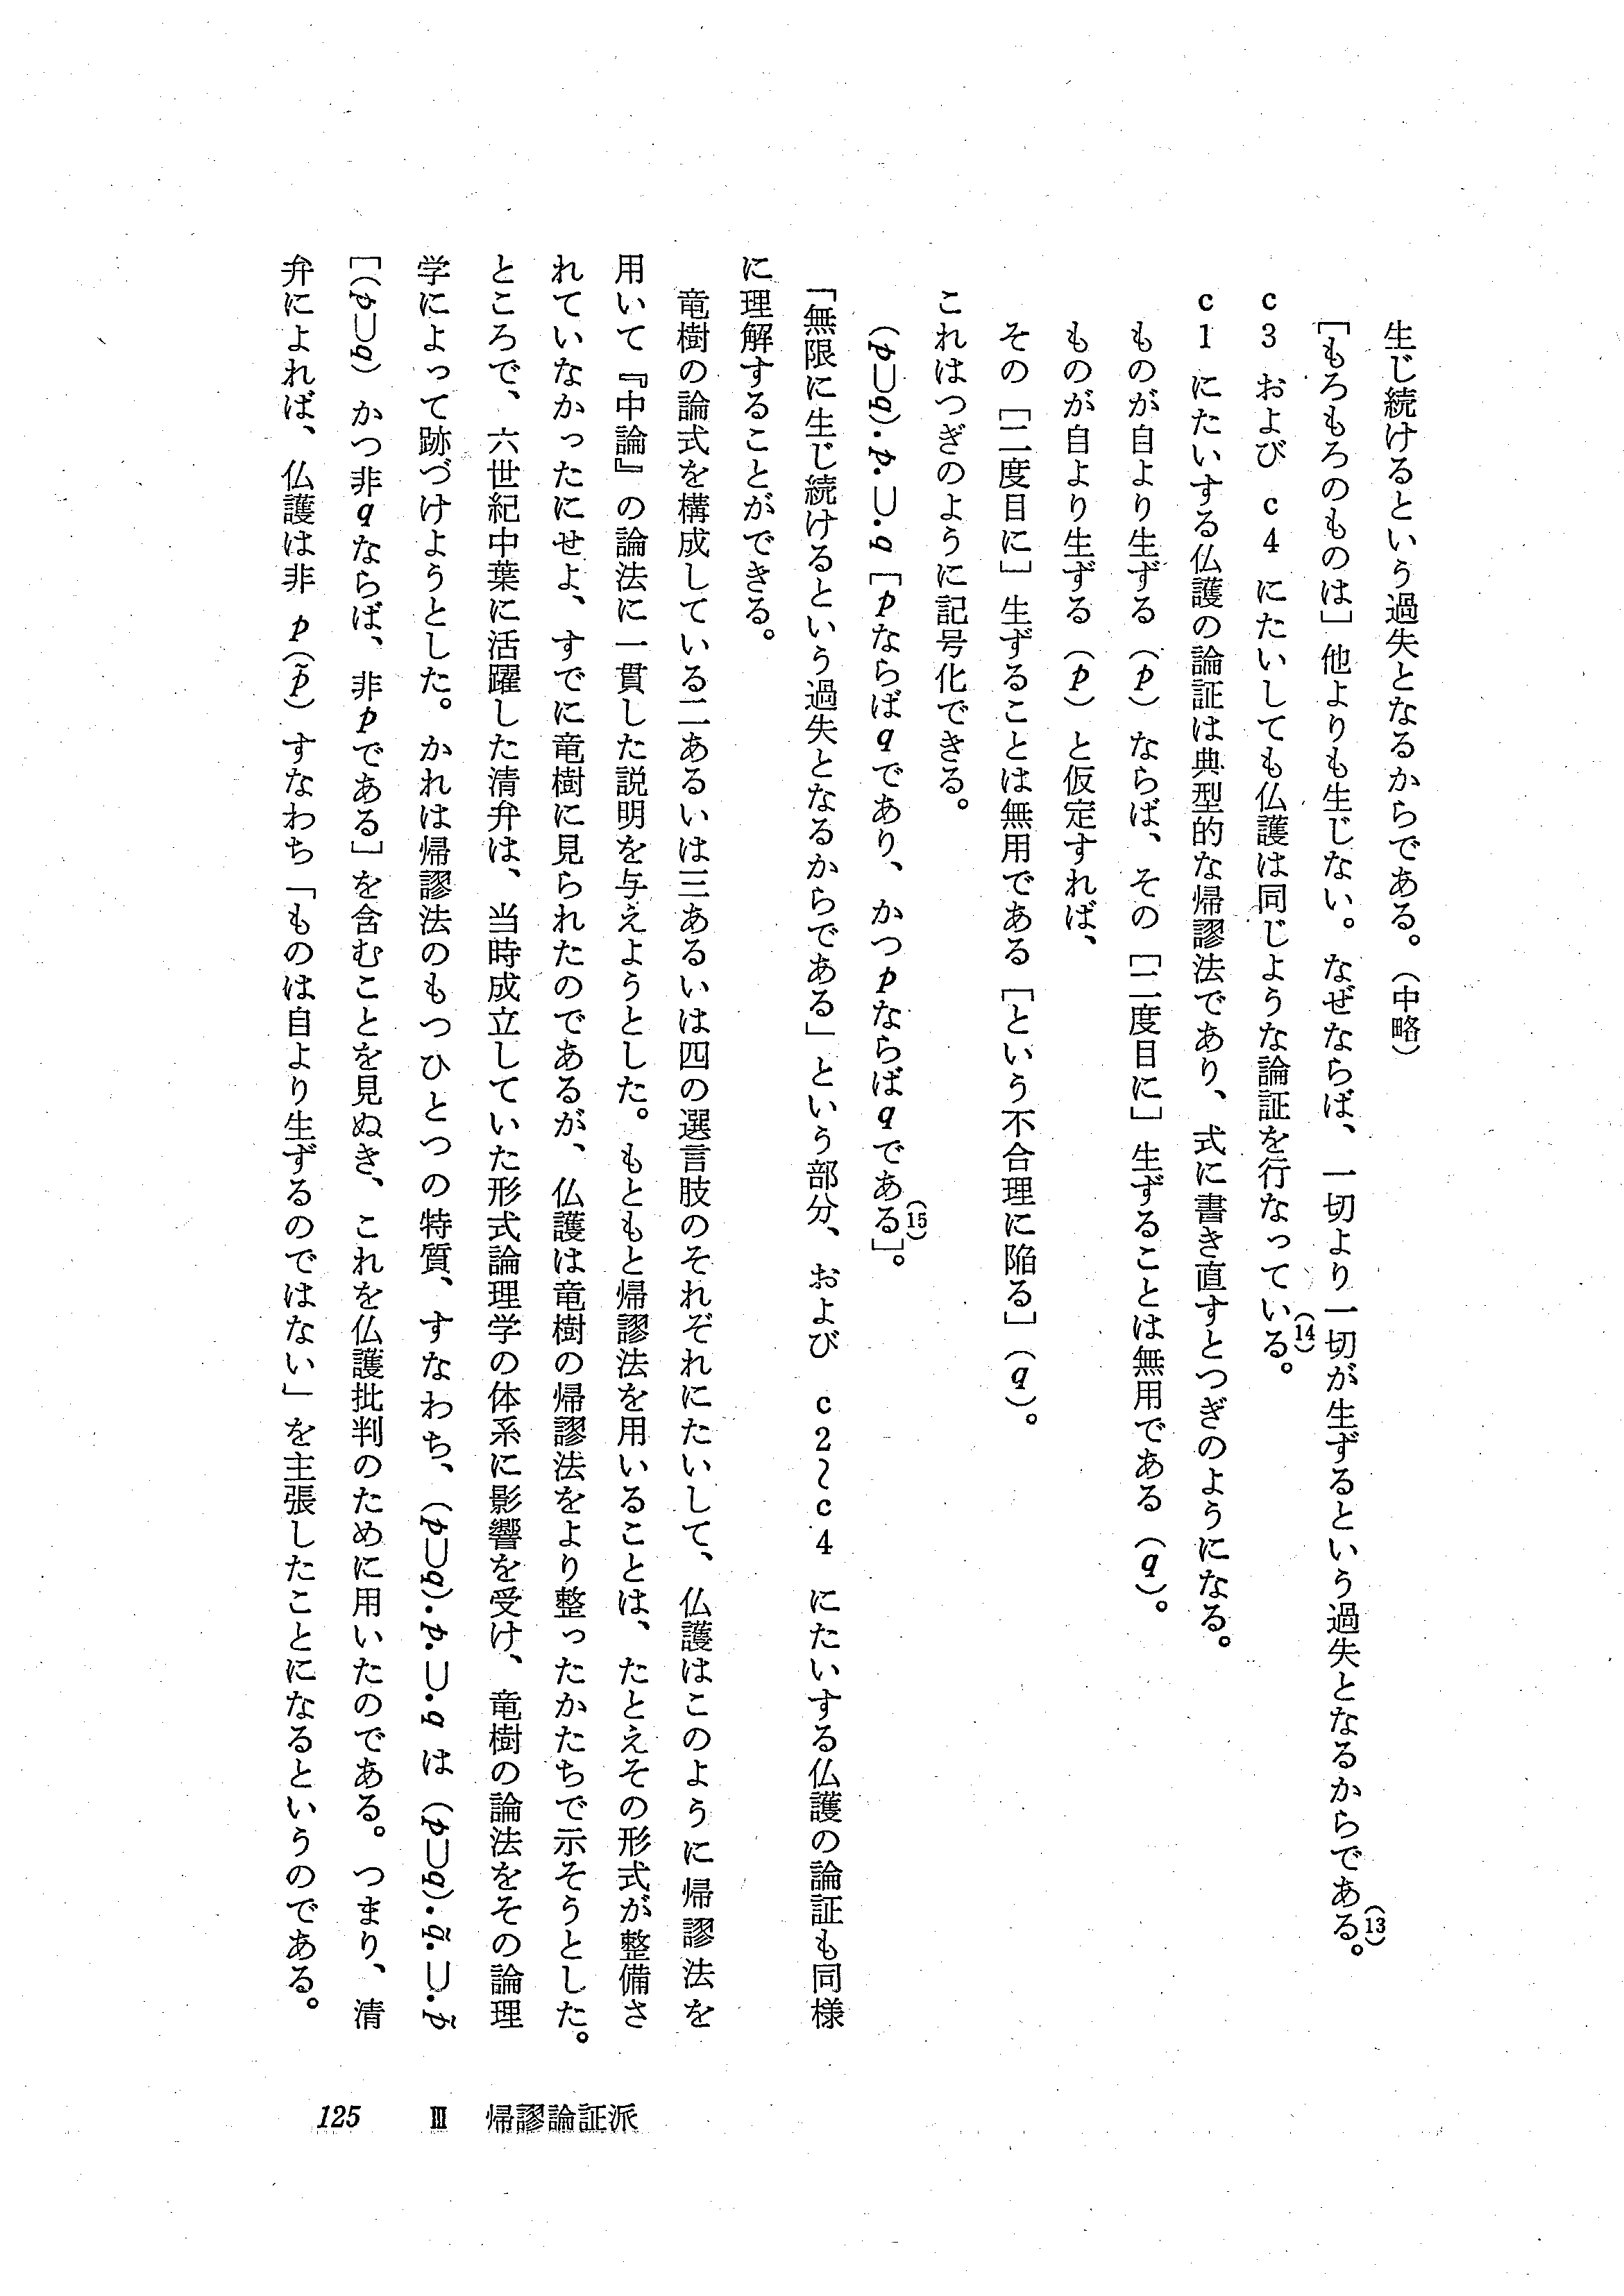 生じ続けるという過失となるからである。（中略）
［もろもろのものは］他よりも生じない。なぜならば、一切より一切が生ずるという過失となるからである。(13)
c3 および c4 にたいしても仏護は同じような論証を行なっている。(14)
c1 にたいする仏護の論証は典型的な帰謬法であり、式に書き直すとつぎのようになる。
ものが自より生ずる（p）ならば、その［二度目に］生ずることは無用である（q）。
ものが自より生ずる（p）と仮定すれば、
その［二度目に］生ずることは無用である［という不合理に陥る］（q）。
これはつぎのように記号化できる。
(p⊃q)·p.⊃.q［pならばqであり、かつpならばqである］。(15)
「無限に生じ続けるという過失となるからである」という部分、および c2〜c4 にたいする仏護の論証も同様
に理解することができる。
竜樹の論式を構成している二あるいは三あるいは四の選言肢のそれぞれにたいして、仏護はこのように帰謬法を
用いて『中論』の論法に一貫した説明を与えようとした。もともと帰謬法を用いることは、たとえその形式が整備さ
れていなかったにせよ、すでに竜樹に見られたのであるが、仏護は竜樹の帰謬法をより整ったかたちで示そうとした。
ところで、六世紀中葉に活躍した清弁は、当時成立していた形式論理学の体系に影響を受け、竜樹の論法をその論理
学によって跡づけようとした。かれは帰謬法のもつひとつの特質、すなわち、(p⊃q)·p.⊃.q は (p⊃q)·q̃.⊃.p̃
［(p⊃q) かつ非qならば、非pである］を含むことを見ぬき、これを仏護批判のために用いたのである。つまり、清
弁によれば、仏護は非 p（p̃）すなわち「ものは自より生ずるのではない」を主張したことになるというのである。
125 Ⅲ 帰謬論証派